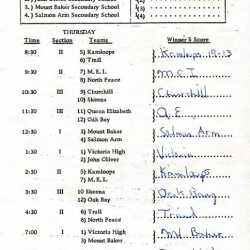 3.) Mount Baker Secondary School (3)
4.) Salmon Arm Secondary School (4)
THURSDAY
Time Section Teams Winner & Score
8:30 II 5) Kamloops Kamloops 19-13
6) Trail
9:30 II 7) M.E.I. M.E.I.
8) North Peace
10:30 III 9) Churchill Churchill
10) Skeena
11:30 III 11) Queen Elizabeth Q.E.
12) Oak Bay
12:30 I 3) Mount Baker Salmon Arm
4) Salmon Arm
1:30 I 1) Victoria High Victoria
2) John Oliver
2:30 II 5) Kamloops Kamloops
7) M.E.I.
3:30 III 10 Skeena Oak Bay
12) Oak Bay
4:30 II 6) Trail
8) North Peace
7:00 I 1) Victoria High Mt Baker
3) Mount Baker